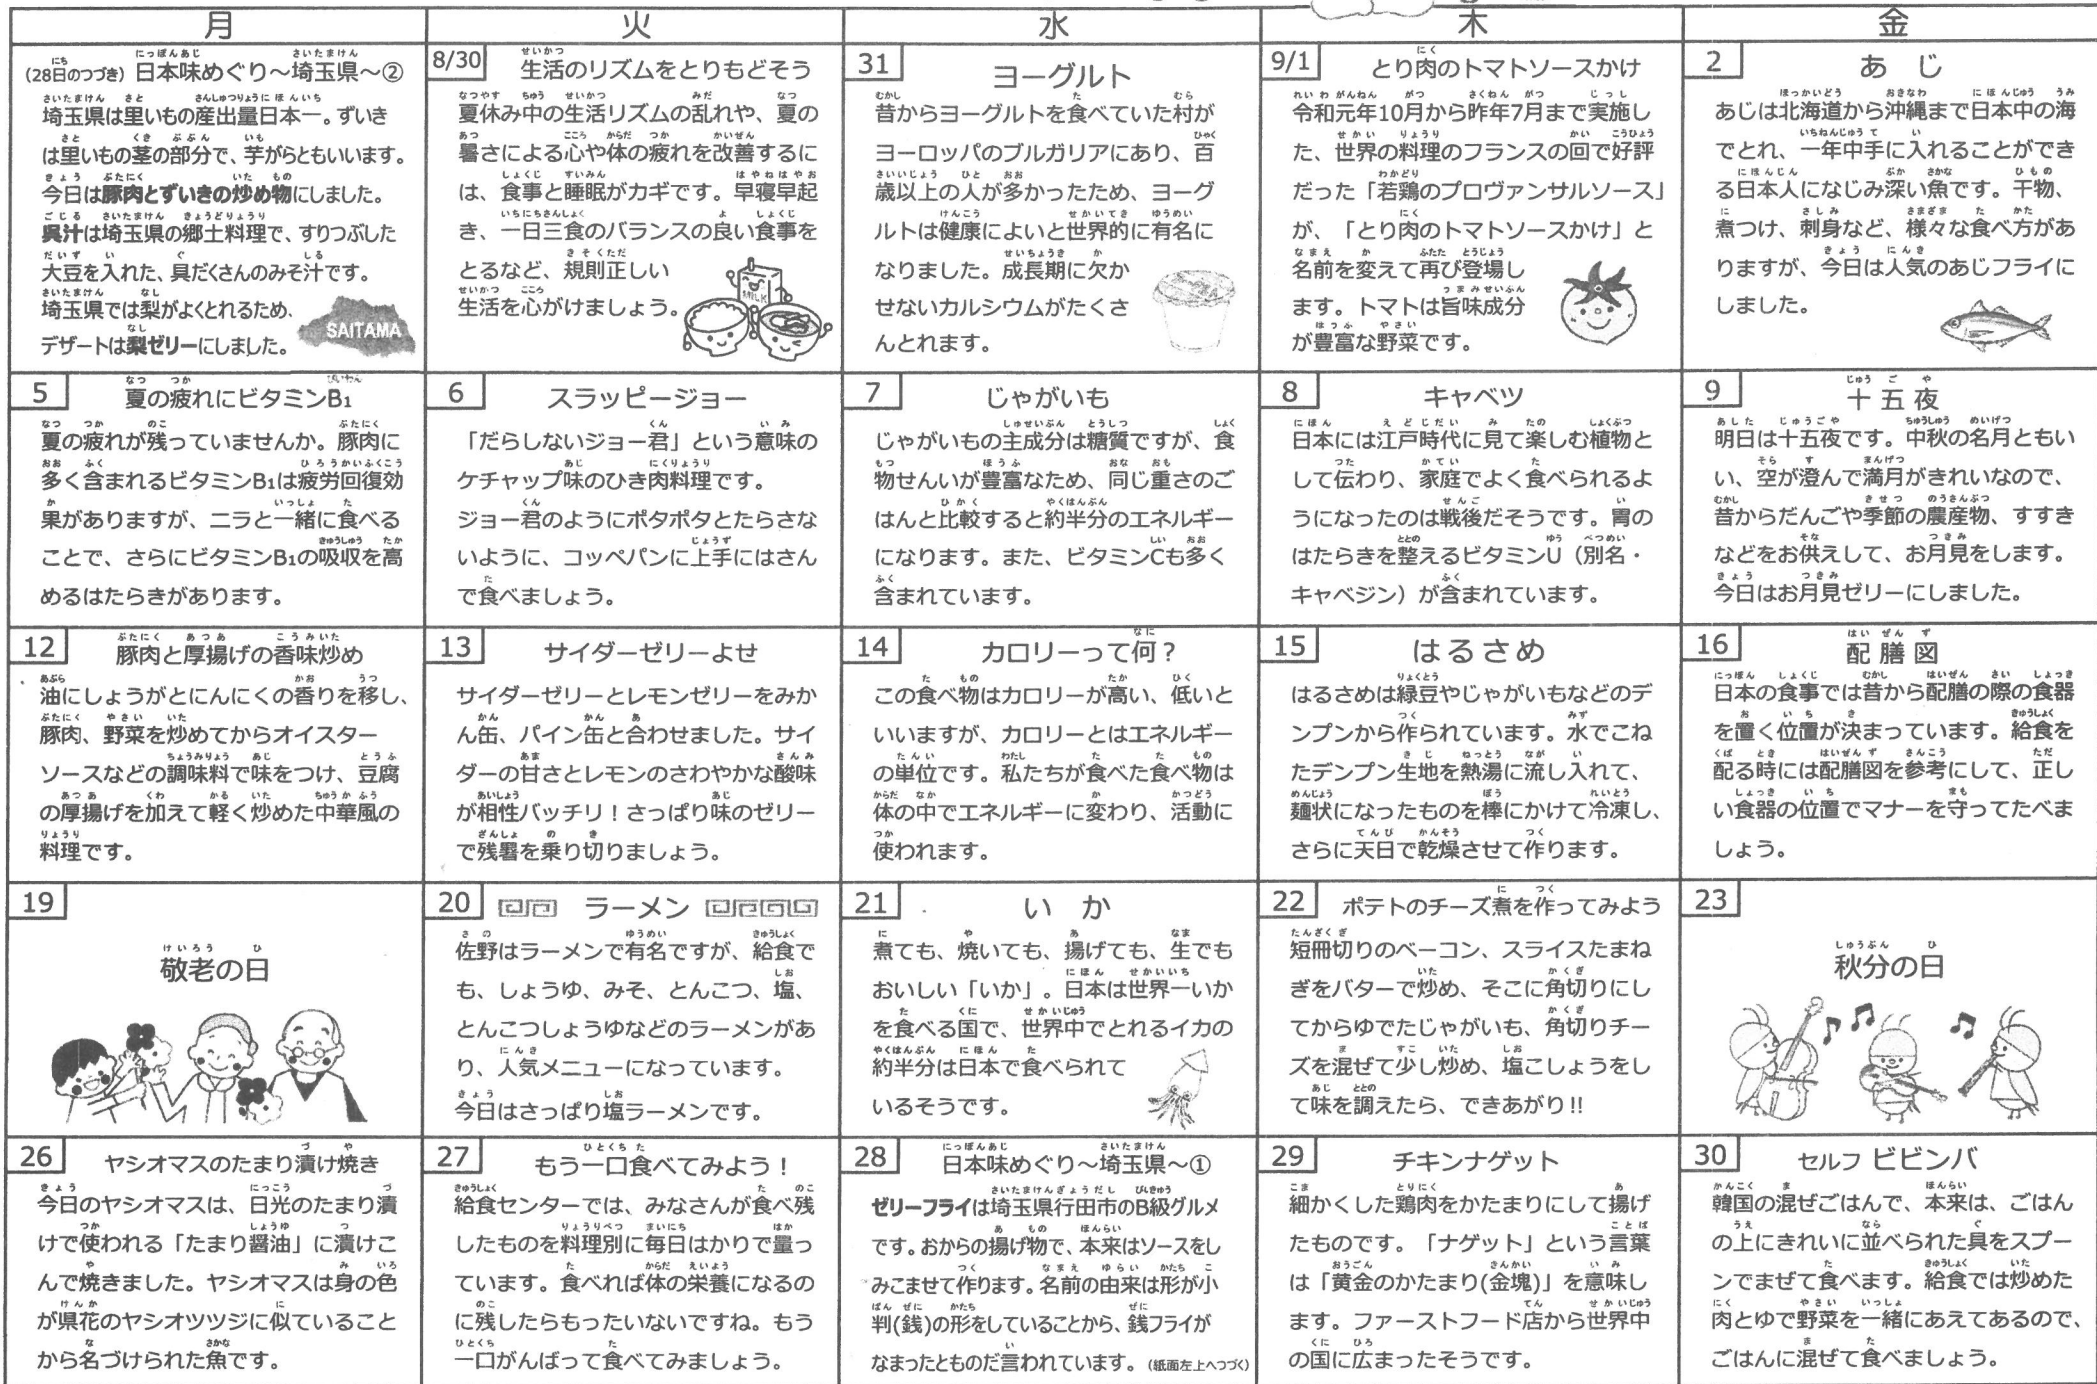 月
火
水
木
金
(28日のつづき) 日本味めぐり～埼玉県～②
埼玉県は里いもの産出量日本一。ずいき
は里いもの茎の部分で、芋がらともいいます。
今日は豚肉とずいきの炒め物にしました。
呉汁は埼玉県の郷土料理で、すりつぶした
大豆を入れた、具だくさんのみそ汁です。
埼玉県では梨がよくとれるため、
デザートは梨ゼリーにしました。
SAITAMA
8/30 生活のリズムをとりもどそう
夏休み中の生活リズムの乱れや、夏の
暑さによる心や体の疲れを改善するに
は、食事と睡眠がカギです。早寝早起
き、一日三食のバランスの良い食事を
とるなど、規則正しい
生活を心がけましょう。
MILK
31 ヨーグルト
昔からヨーグルトを食べていた村が
ヨーロッパのブルガリアにあり、百
歳以上の人が多かったため、ヨーグ
ルトは健康によいと世界的に有名に
なりました。成長期に欠か
せないカルシウムがたくさ
んとれます。
9/1 とり肉のトマトソースかけ
令和元年10月から昨年7月まで実施し
た、世界の料理のフランスの回で好評
だった「若鶏のプロヴァンサルソース」
が、「とり肉のトマトソースかけ」と
名前を変えて再び登場し
ます。トマトは旨味成分
が豊富な野菜です。
2 あじ
あじは北海道から沖縄まで日本中の海
でとれ、一年中手に入れることができ
る日本人になじみ深い魚です。干物、
煮つけ、刺身など、様々な食べ方があ
りますが、今日は人気のあじフライに
しました。
5 夏の疲れにビタミンB₁
夏の疲れが残っていませんか。豚肉に
多く含まれるビタミンB₁は疲労回復効
果がありますが、ニラと一緒に食べる
ことで、さらにビタミンB₁の吸収を高
めるはたらきがあります。
6 スラッピージョー
「だらしないジョー君」という意味の
ケチャップ味のひき肉料理です。
ジョー君のようにポタポタとたらさな
いように、コッペパンに上手にはさん
で食べましょう。
7 じゃがいも
じゃがいもの主成分は糖質ですが、食
物せんいが豊富なため、同じ重さのご
はんと比較すると約半分のエネルギー
になります。また、ビタミンCも多く
含まれています。
8 キャベツ
日本には江戸時代に見て楽しむ植物と
して伝わり、家庭でよく食べられるよ
うになったのは戦後だそうです。胃の
はたらきを整えるビタミンU（別名・
キャベジン）が含まれています。
9 十五夜
明日は十五夜です。中秋の名月ともい
い、空が澄んで満月がきれいなので、
昔からだんごや季節の農産物、すすき
などをお供えして、お月見をします。
今日はお月見ゼリーにしました。
12 豚肉と厚揚げの香味炒め
油にしょうがとにんにくの香りを移し、
豚肉、野菜を炒めてからオイスター
ソースなどの調味料で味をつけ、豆腐
の厚揚げを加えて軽く炒めた中華風の
料理です。
13 サイダーゼリーよせ
サイダーゼリーとレモンゼリーをみか
ん缶、パイン缶と合わせました。サイ
ダーの甘さとレモンのさわやかな酸味
が相性バッチリ！さっぱり味のゼリー
で残暑を乗り切りましょう。
14 カロリーって何？
この食べ物はカロリーが高い、低いと
いいますが、カロリーとはエネルギー
の単位です。私たちが食べた食べ物は
体の中でエネルギーに変わり、活動に
使われます。
15 はるさめ
はるさめは緑豆やじゃがいもなどのデ
ンプンから作られています。水でこね
たデンプン生地を熱湯に流し入れて、
麺状になったものを棒にかけて冷凍し、
さらに天日で乾燥させて作ります。
16 配膳図
日本の食事では昔から配膳の際の食器
を置く位置が決まっています。給食を
配る時には配膳図を参考にして、正し
い食器の位置でマナーを守ってたべま
しょう。
19
敬老の日
20 ラーメン
佐野はラーメンで有名ですが、給食で
も、しょうゆ、みそ、とんこつ、塩、
とんこつしょうゆなどのラーメンがあ
り、人気メニューになっています。
今日はさっぱり塩ラーメンです。
21 いか
煮ても、焼いても、揚げても、生でも
おいしい「いか」。日本は世界一いか
を食べる国で、世界中でとれるイカの
約半分は日本で食べられて
いるそうです。
22 ポテトのチーズ煮を作ってみよう
短冊切りのベーコン、スライスたまね
ぎをバターで炒め、そこに角切りにし
てからゆでたじゃがいも、角切りチー
ズを混ぜて少し炒め、塩こしょうをし
て味を調えたら、できあがり!!
23
秋分の日
26 ヤシオマスのたまり漬け焼き
今日のヤシオマスは、日光のたまり漬
けで使われる「たまり醤油」に漬けこ
んで焼きました。ヤシオマスは身の色
が県花のヤシオツツジに似ていること
から名づけられた魚です。
27 もう一口食べてみよう！
給食センターでは、みなさんが食べ残
したものを料理別に毎日はかりで量っ
ています。食べれば体の栄養になるの
に残したらもったいないですね。もう
一口がんばって食べてみましょう。
28 日本味めぐり～埼玉県～①
ゼリーフライは埼玉県行田市のB級グルメ
です。おからの揚げ物で、本来はソースをし
みこませて作ります。名前の由来は形が小
判(銭)の形をしていることから、銭フライが
なまったとものだ言われています。(紙面左上へつづく)
29 チキンナゲット
細かくした鶏肉をかたまりにして揚げ
たものです。「ナゲット」という言葉
は「黄金のかたまり(金塊)」を意味し
ます。ファーストフード店から世界中
の国に広まったそうです。
30 セルフ ビビンバ
韓国の混ぜごはんで、本来は、ごはん
の上にきれいに並べられた具をスプー
ンでまぜて食べます。給食では炒めた
肉とゆで野菜を一緒にあえてあるので、
ごはんに混ぜて食べましょう。